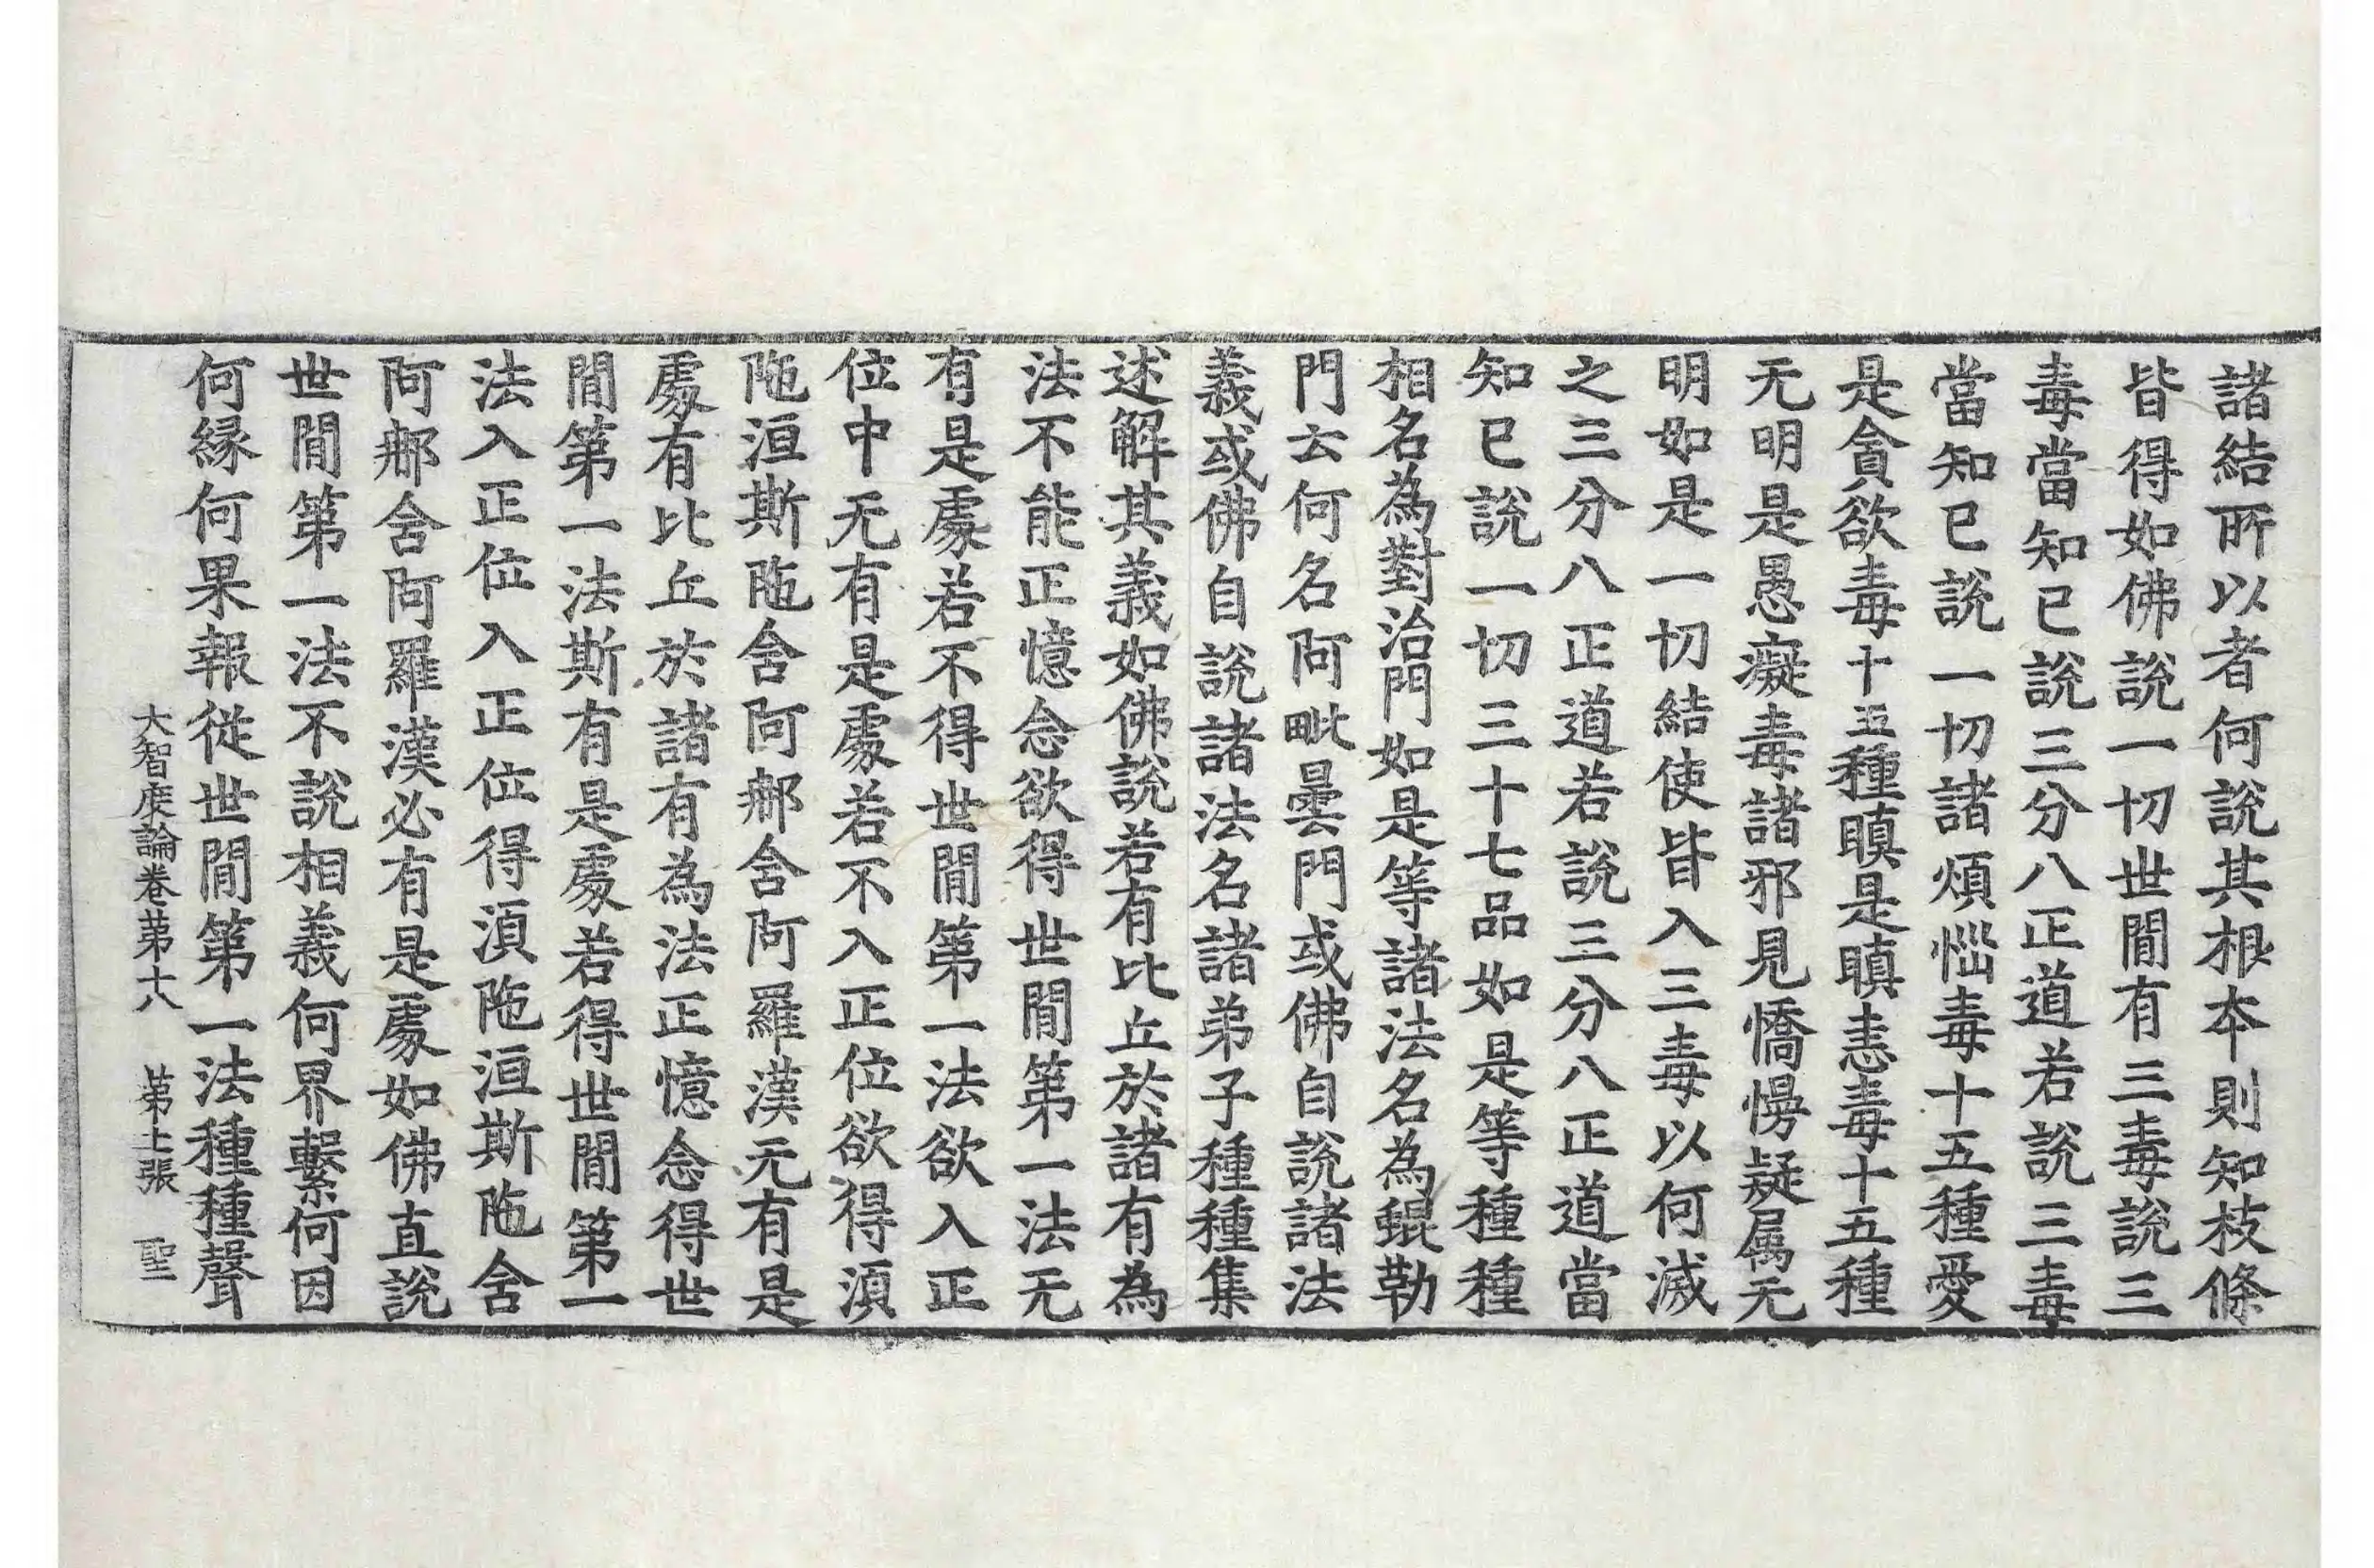 諸結所以者何說其根本則知枝條
皆得如佛說一切世間有三毒說三
毒當知已說三分八正道若說三毒
當知已說一切諸煩惱毒十五種愛
是貪欲毒十五種瞋是瞋恚毒十五種
无明是愚癡毒諸邪見憍慢疑属无
明如是一切結使皆入三毒以何滅
之三分八正道若說三分八正道當
知已說一切三十七品如是等種種
相名為對治門如是等諸法名為蜫勒
門云何名阿毗曇門或佛自說諸法
義或佛自說諸法名諸弟子種種集
述解其義如佛說若有比丘於諸有為
法不能正憶念欲得世間第一法无
有是處若不得世間第一法欲入正
位中无有是處若不入正位欲得湏
陁洹斯陁含阿那含阿羅漢无有是
處有比丘於諸有為法正憶念得世
間第一法斯有是處若得世間第一
法入正位入正位得湏陁洹斯陁含
阿那含阿羅漢必有是處如佛直說
世間第一法不說相義何界繫何因
何緣何果報從世間第一法種種聲
大智度論卷第十八　第七張　聖